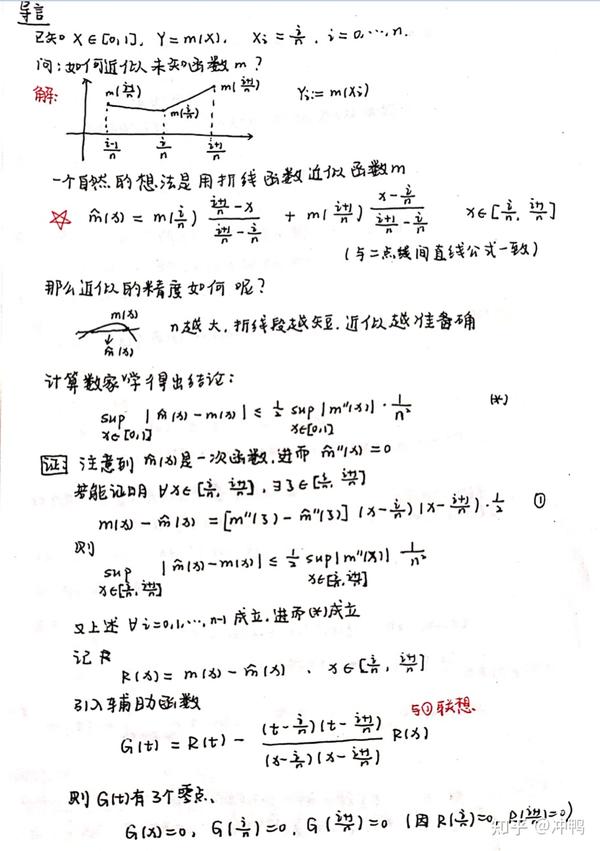 导言
已知 X∈[0,1], Y=m(X), Xi = i/n, i=0,…,n.
问:如何近似未知函数 m?
解:
m(i-1/n) m(i/n) m(i+1/n) Yi:=m(Xi)
i-1/n i/n i+1/n
一个自然的想法是用折线函数近似函数m
☆ m̂(x) = m(i/n) (i+1/n - x)/(i+1/n - i/n) + m(i+1/n) (x - i/n)/(i+1/n - i/n) x∈[i/n, i+1/n]
(与二点线间直线公式一致)
那么近似的精度如何呢?
m(x)
m̂(x)
n越大,折线段越短,近似越准备确
计算数学家得出结论:
sup x∈[0,1] |m̂(x)-m(x)| ≤ 1/2 sup x∈[0,1] |m''(x)| · 1/n² (*)
证: 注意到 m̂(x)是一次函数,进而 m̂''(x)=0
若能证明 ∀x∈[i/n, i+1/n], ∃ξ∈[i/n, i+1/n]
m(x)-m̂(x) = [m''(ξ)-m̂''(ξ)] (x-i/n)(x-i+1/n)·1/2 ①
则
sup x∈[i/n, i+1/n] |m̂(x)-m(x)| ≤ 1/2 sup x∈[i/n, i+1/n] |m''(x)| 1/n²
又上述 ∀i=0,1,…,n-1 成立,进而(*)成立
记
R(x) = m(x)-m̂(x), x∈[i/n, i+1/n]
引入辅助函数
与①联想
G(t) = R(t) - (t-i/n)(t-i+1/n)/(x-i/n)(x-i+1/n) R(x)
则 G(t)有3个零点.
G(x)=0, G(i/n)=0, G(i+1/n)=0 (因 R(i/n)=0, R(i+1/n)=0)
知乎 @冲鸭